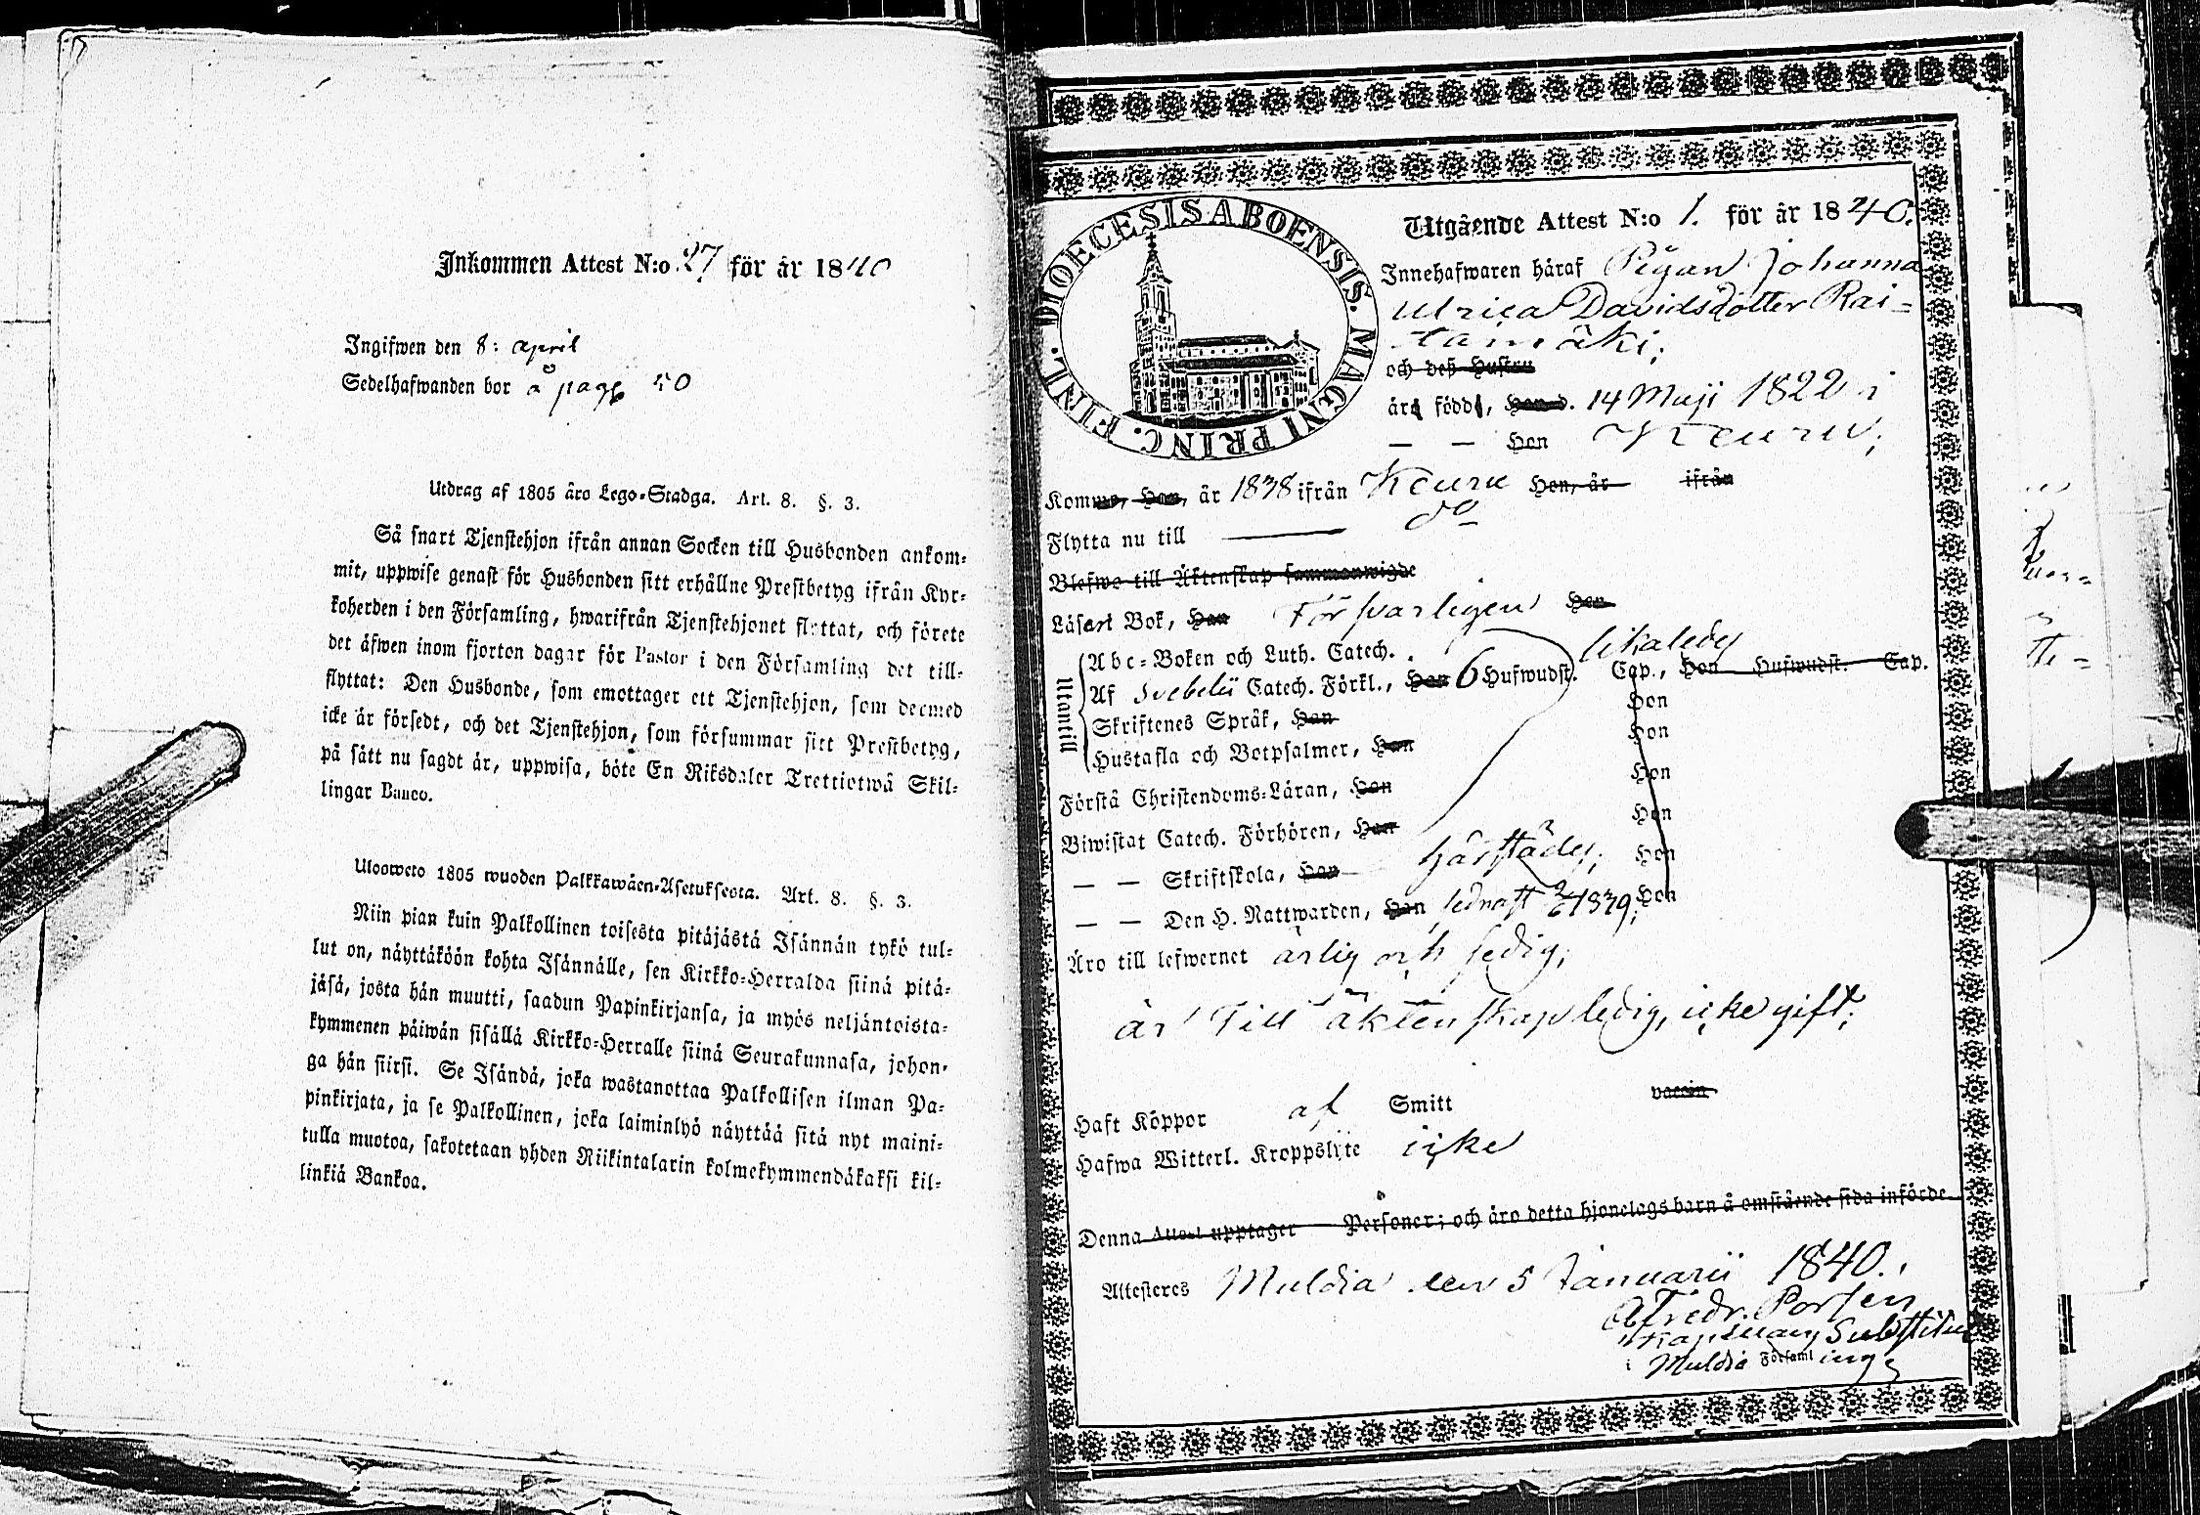 Inkommen Attest N:o 27 för år 1840
Ingifwen den 8: april
Sedelhafwanden bor å pag 50
Utdrag af 1805 åro Lego-Stadga. Art. 8. §. 3.
Så snart Tjenstehjon ifrån annan Socken till Husbonden ankom-
mit, uppwise genast för Husbonden sitt erhållne Prestbetyg ifrån Kyr-
koherden i den Församling, hwarifrån Tjenstehjonet flyttat, och förete
det äfwen inom fjorton dagar för Pastor i den Församling det till-
flyttat: Den Husbonde, som emottager ett Tjenstehjon, som dermed
icke är försedt, och det Tjenstehjon, som försummar sitt Prestbetyg,
på sätt nu sagdt är, uppwisa, böte En Riksdaler Trettiotwå Skil-
lingar Banco.
Ulosweto 1805 wuoden Palkkawäen-Asetuksesta. Art. 8. §. 3.
Niin pian kuin Palkollinen toisesta pitäjästä Isännän tykö tul-
lut on, näyttäköön kohta Isännälle, sen Kirkko-Herralda siinä pitä-
jäsä, josta hän muutti, saadun Papinkirjansa, ja myös neljäntoista-
kymmenen päiwän sisällä Kirkko-Herralle siinä Seurakunnasa, johon-
ga hän siirsi. Se Isändä, joka wastanottaa Palkollisen ilman Pa-
pinkirjata, ja se Palkollinen, joka laiminlyö näyttää sitä nyt maini-
tulla muotoa, sakotetaan yhden Riikintalarin kolmekymmendäkaksi kil-
linkiä Bankoa.
DIOECESIS ABOENSIS. MAGNI PRINC. FINL.
Utgående Attest N:o 1. för år 1840.
Innehafwaren häraf Pigan Johanna
Ulrica Davidsdotter Rai-
tamäki;
och deß Hustru
äro född, Han d. 14 Maji 1822 i
— — Hon Keuru;
Komme, Han, år 1838 ifrån Keuru Hon, år ifrån
Flytta nu till — do
Blefwo till Äktenskap sammanwigde
Läsart Bok, Han Försvarligen Hon
Utantill
Abc-Boken och Luth. Catech. likaledes
Af Svebelii Catech. Förkl., Han 6 Hufwudst. Cap., Hon Hufwudst. Cap.
Skriftenes Språk, Han Hon
Hustafla och Botpsalmer, Han Hon
Förstå Christendoms-Läran, Han Hon
Biwistat Catech. Förhören, Han Hon
— — Skriftskola, Han härstädes; Hon
— — Den H. Nattwarden, Han sednast 1839; Hon
Äro till lefwernet ärlig och sedig;
är till äktenskap ledig, icke gift;
Haft Koppor af Smitt vaccin
Hafwa Witterl. Kroppslyte icke
Denna Attest upptager Personer; och äro detta hjonelags barn å omstående sida införde
Attesteres Muldia den 5 Januarii 1840.
Fredr. Porsen
Substitut
i Muldia Församling